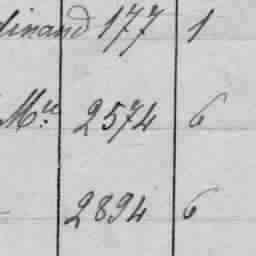 dinand 177 1
Mr: 2574 6
2894 6